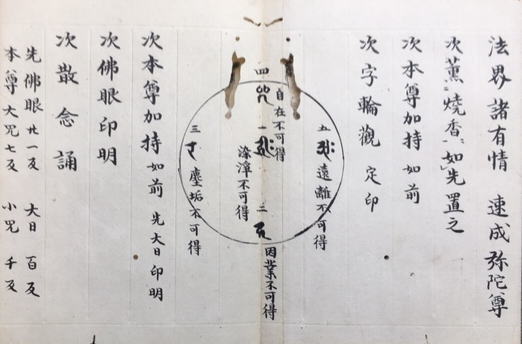 法界諸有情 速成弥陀尊
次薫燒香 如先置之
次本尊加持 如前
次字輪觀 定印
五 遠離不可得
四 自在不可得
一 染淨不可得
二 因業不可得
三 塵垢不可得
次本尊加持 如前 先大日印明
次佛眼印明
次散念誦
先佛眼 廿一反 大日 百反
本尊 大咒七反 小咒 千反